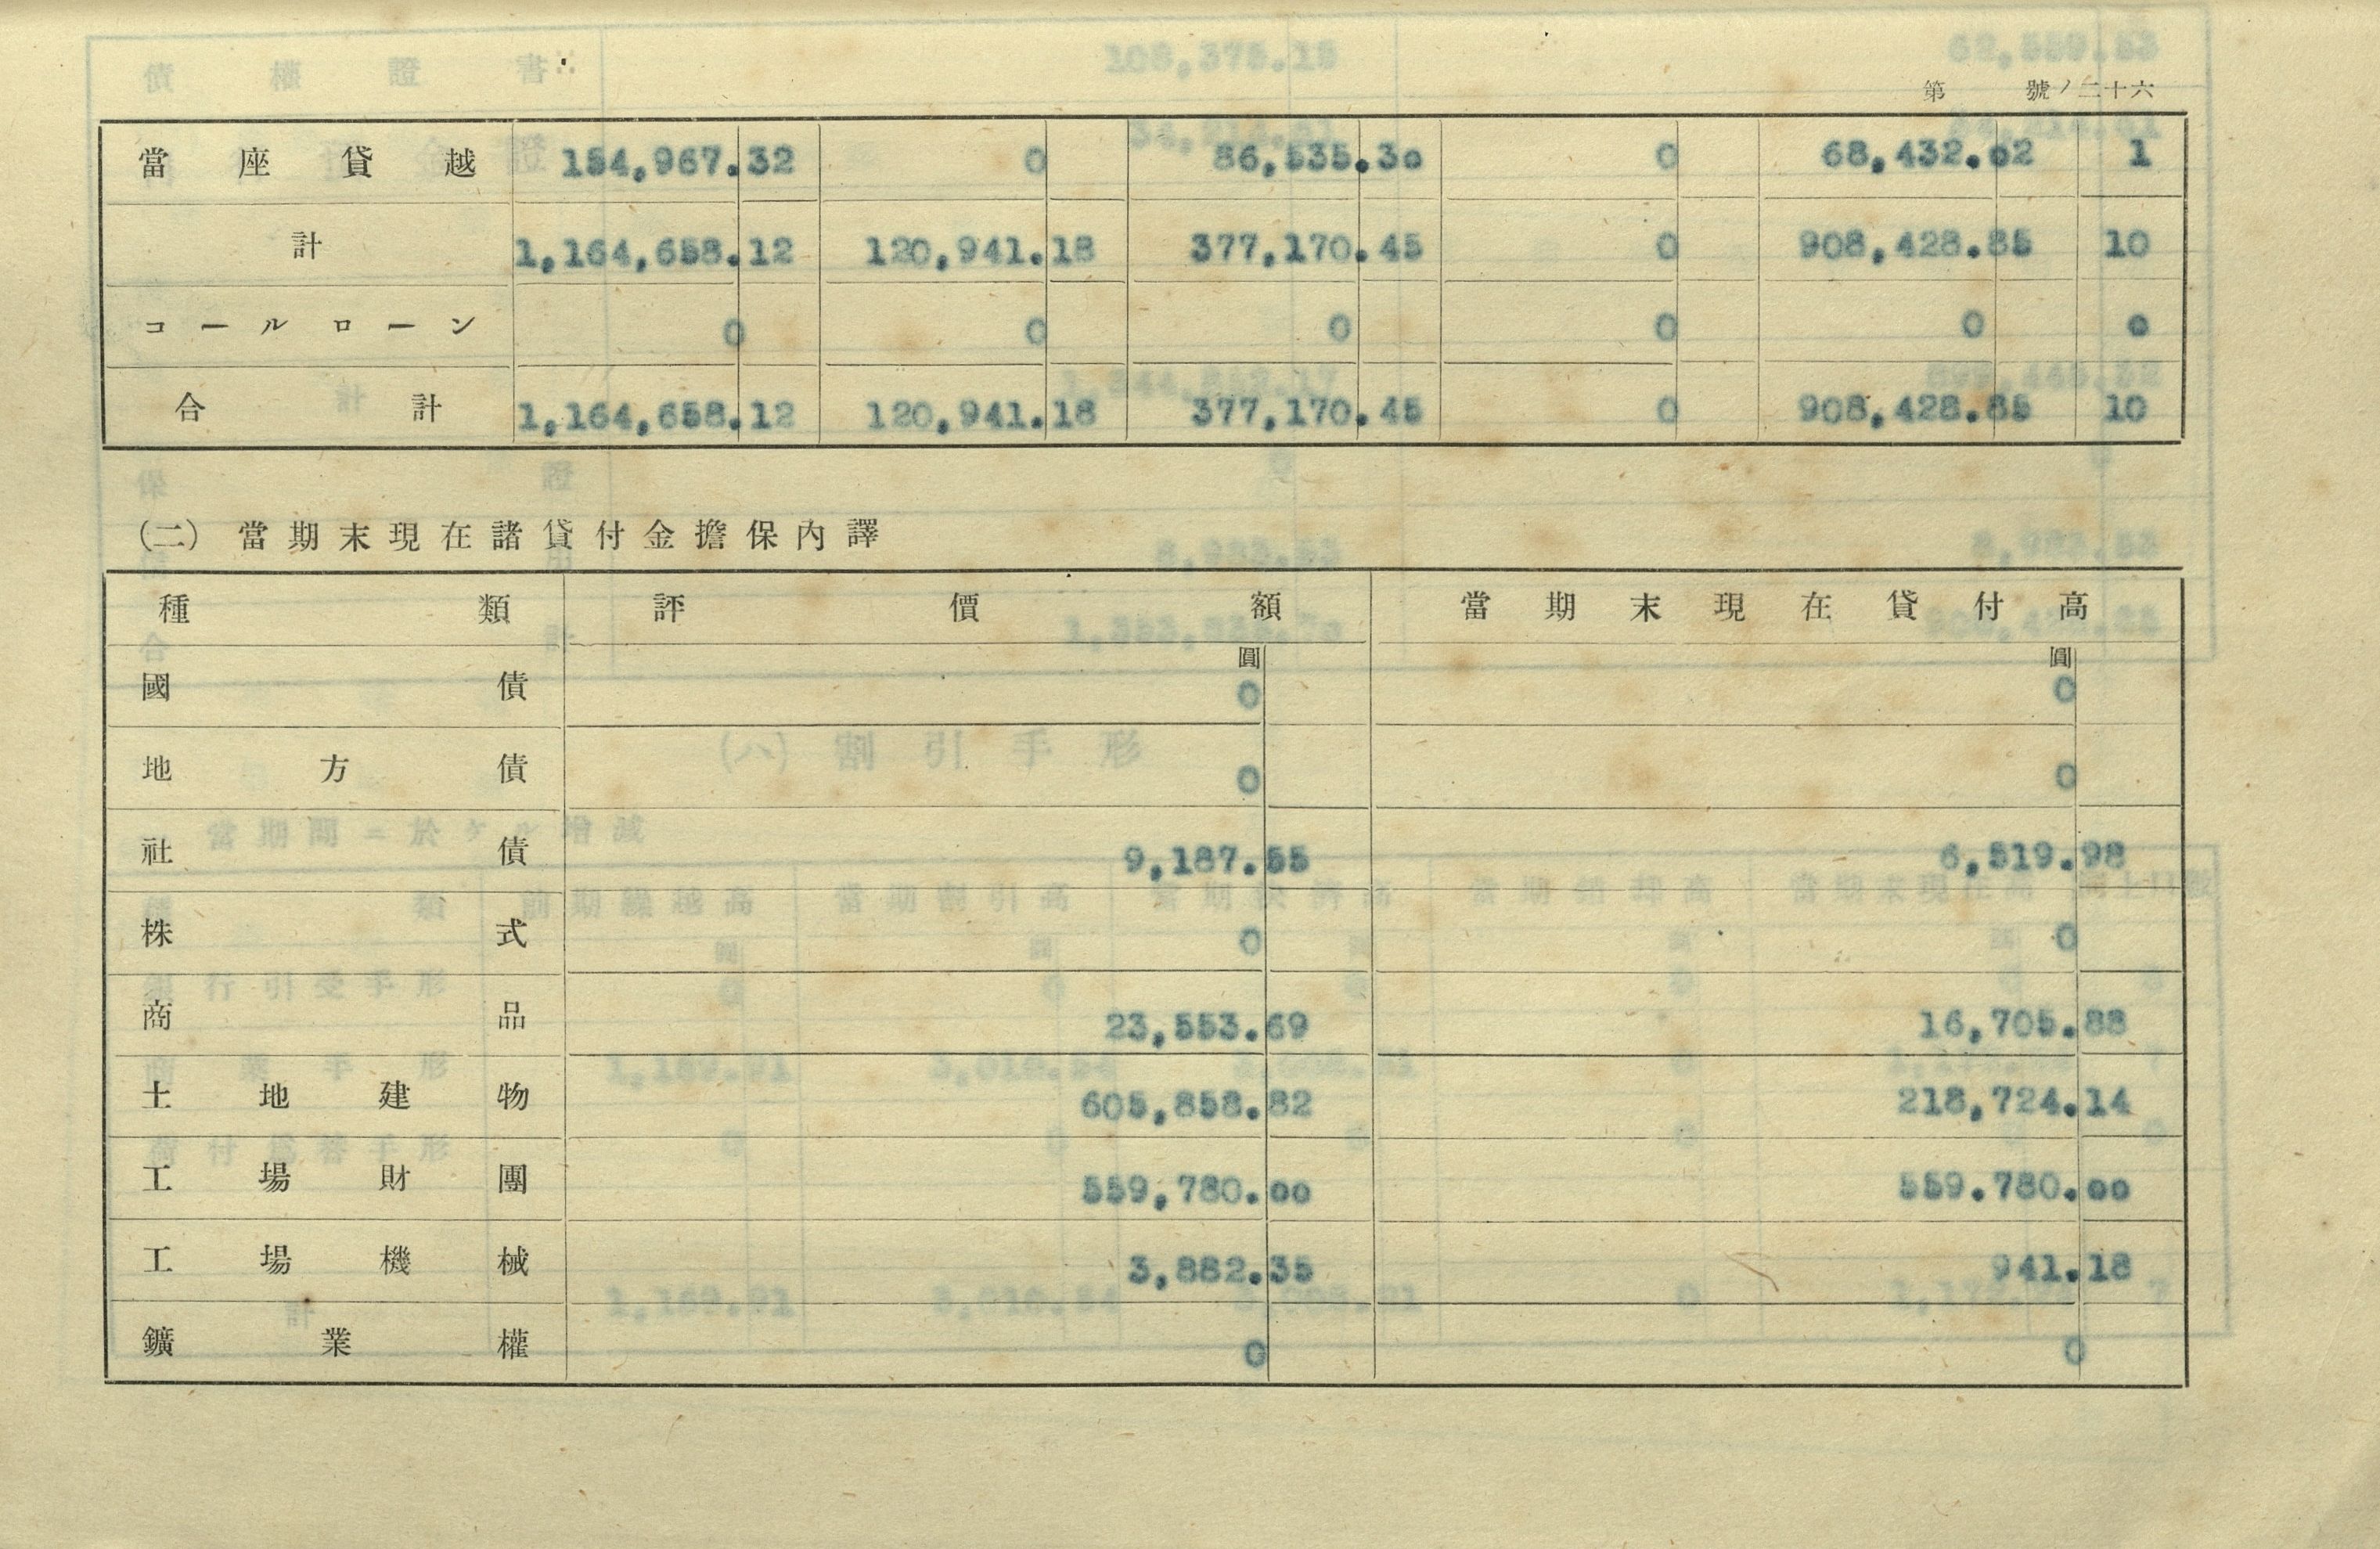 第 號ノ二十六
當座貸越 154,967.32 0 86,535.30 0 68,432.02 1
計 1,164,658.12 120,941.18 377,170.45 0 908,428.85 10
コールローン 0 0 0 0 0 0
合計 1,164,658.12 120,941.18 377,170.45 0 908,428.85 10
(二) 當期末現在諸貸付金擔保內譯
種類 評價額 當期末現在貸付高
圓 圓
國債 0 0
地方債 0 0
社債 9,187.55 6,519.98
株式 0 0
商品 23,553.69 16,705.88
土地建物 605,858.82 218,724.14
工場財團 559,780.00 559.780.00
工場機械 3,882.35 941.18
鑛業權 0 0